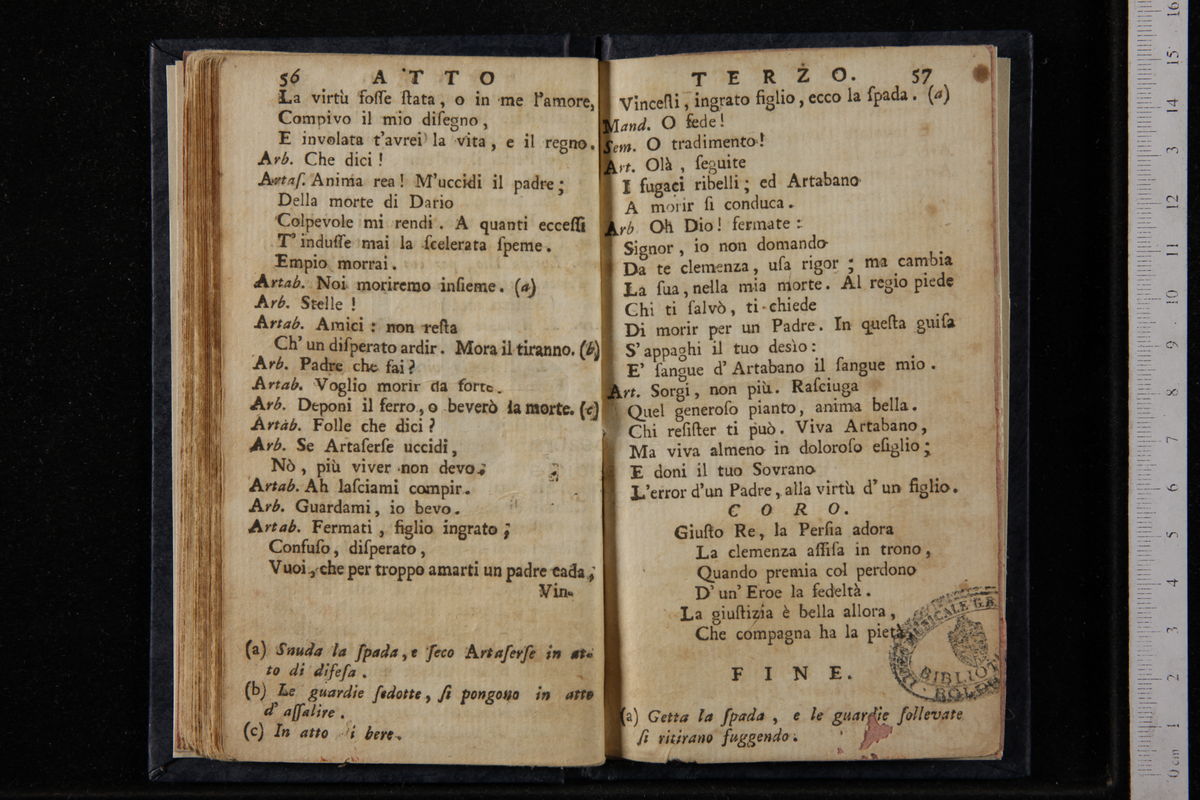 56 ATTO
La virtù foſſe ſtata, o in me l'amore,
Compivo il mio diſegno,
E involata t'avrei la vita, e il regno.
Arb. Che dici!
Artaſ. Anima rea! M'uccidi il padre;
Della morte di Dario
Colpevole mi rendi. A quanti ecceſſi
T' induſſe mai la ſcelerata ſpeme.
Empio morrai.
Artab. Noi moriremo inſieme. (a)
Arb. Stelle!
Artab. Amici: non reſta
Ch' un diſperato ardir. Mora il tiranno. (b)
Arb. Padre che fai?
Artab. Voglio morir da forte.
Arb. Deponi il ferro, o beverò la morte. (c)
Artab. Folle che dici?
Arb. Se Artaſerſe uccidi,
Nò, più viver non devo.
Artab. Ah laſciami compir.
Arb. Guardami, io bevo.
Artab. Fermati, figlio ingrato;
Confuſo, diſperato,
Vuoi, che per troppo amarti un padre cada;
Vin-
(a) Snuda la ſpada, e ſeco Artaſerſe in at-
to di difeſa.
(b) Le guardie ſedotte, ſi pongono in atto
d' aſſalire.
(c) In atto i bere.
TERZO. 57
Vinceſti, ingrato figlio, ecco la ſpada. (a)
Mand. O fede!
Sem. O tradimento!
Art. Olà, ſeguite
I fugaci ribelli; ed Artabano
A morir ſi conduca.
Arb Oh Dio! fermate:
Signor, io non domando
Da te clemenza, uſa rigor; ma cambia
La ſua, nella mia morte. Al regio piede
Chi ti ſalvò, ti chiede
Di morir per un Padre. In queſta guiſa
S' appaghi il tuo desìo:
E' ſangue d' Artabano il ſangue mio.
Art. Sorgi, non più. Raſciuga
Quel generoſo pianto, anima bella.
Chi reſiſter ti può. Viva Artabano,
Ma viva almeno in doloroſo eſiglio;
E doni il tuo Sovrano
L'error d'un Padre, alla virtù d' un figlio.
CORO.
Giuſto Re, la Perſia adora
La clemenza aſſiſa in trono,
Quando premia col perdono
D' un' Eroe la fedeltà.
La giuſtizia è bella allora,
Che compagna ha la pietà.
FINE.
(a) Getta la ſpada, e le guardie ſollevate
ſi ritirano fuggendo.
MUSICALE G.B.
BIBLIOT